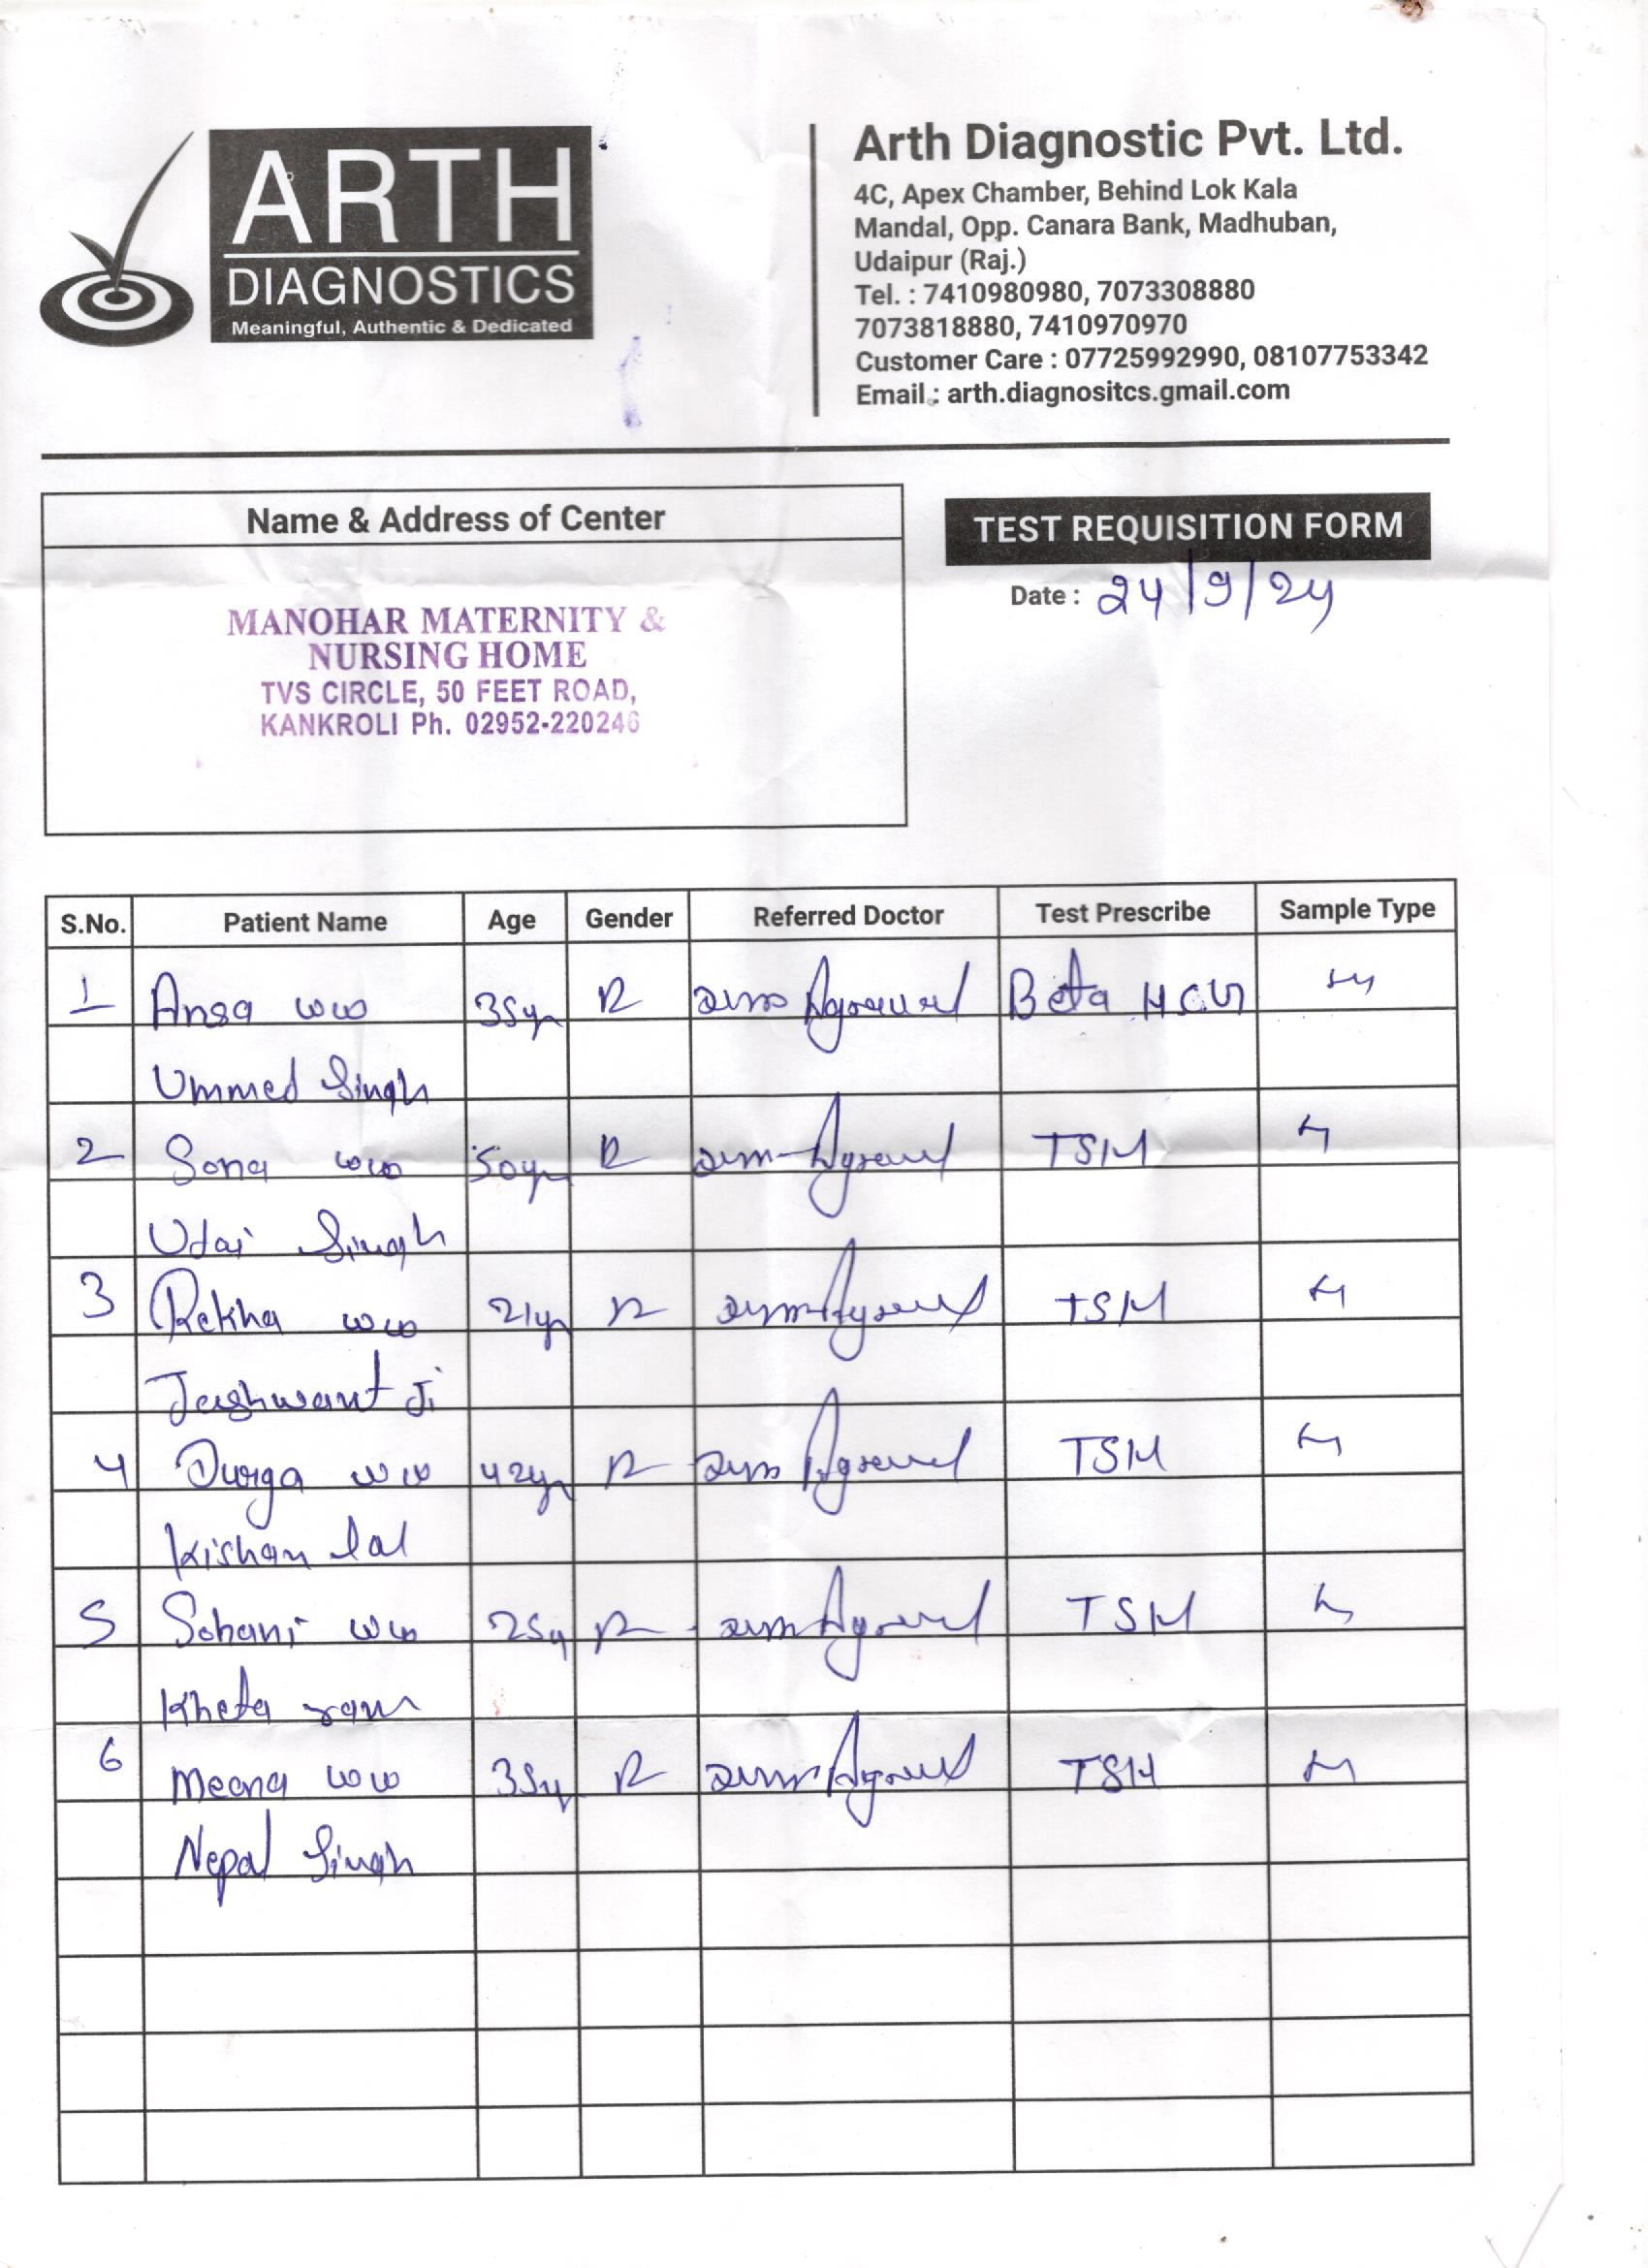 ARTH
DIAGNOSTICS
Meaningful, Authentic & Dedicated
Arth Diagnostic Pvt. Ltd.
4C, Apex Chamber, Behind Lok Kala
Mandal, Opp. Canara Bank, Madhuban,
Udaipur (Raj.)
Tel. : 7410980980, 7073308880
7073818880, 7410970970
Customer Care : 07725992990, 08107753342
Email : arth.diagnositcs.gmail.com
Name & Address of Center
TEST REQUISITION FORM
Date : 24/9/24
MANOHAR MATERNITY &
NURSING HOME
TVS CIRCLE, 50 FEET ROAD,
KANKROLI Ph. 02952-220246
S.No. Patient Name Age Gender Referred Doctor Test Prescribe Sample Type
1 Ansa w/o 35yr Agrawal Beta HCG
Ummed Singh
2 Sona w/o 50yr Agrawal TSH
Udai Singh
3 Rekha w/o 21yr Agrawal TSH
Jashwant Ji
4 Durga w/o 42yr Agrawal TSH
Kishan lal
5 Sohani w/o 25y Agrawal TSH
Kheta ram
6 Meena w/o 35yr Agrawal TSH
Nepal Singh